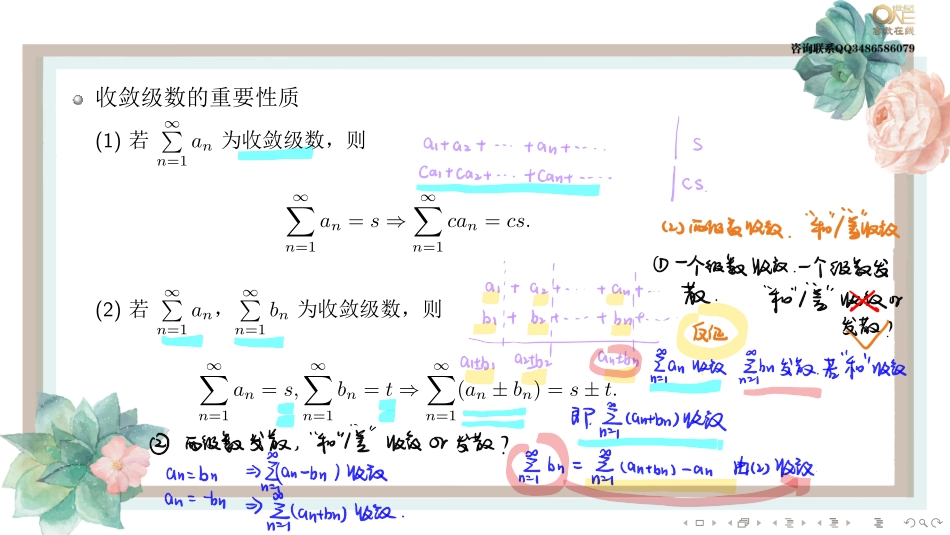 ONE
高数在线
咨询联系QQ3486586079
收敛级数的重要性质
(1) 若 ∑_{n=1}^{∞} a_n 为收敛级数，则
a₁+a₂+ ⋯ +a_n+⋯ | S
Ca₁+Ca₂+⋯ +Ca_n+⋯ | CS.
∑_{n=1}^{∞} a_n = s ⇒ ∑_{n=1}^{∞} ca_n = cs.
(2) 两级数收敛. "和"/"差"收敛
① 一个级数收敛.一个级数发
散. "和"/"差" 收敛 or
发散?
(2) 若 ∑_{n=1}^{∞} a_n，∑_{n=1}^{∞} b_n 为收敛级数，则
a₁ + a₂ + ⋯ + a_n + ⋯
b₁ + b₂ + ⋯ + b_n + ⋯
a₁+b₁ a₂+b₂ a_n+b_n
反证
∑_{n=1}^{∞} a_n 收敛 ∑_{n=1}^{∞} b_n 发散. 若"和"收敛
∑_{n=1}^{∞} a_n = s, ∑_{n=1}^{∞} b_n = t ⇒ ∑_{n=1}^{∞} (a_n ± b_n) = s ± t.
即 ∑_{n=1}^{∞} (a_n+b_n) 收敛
∑_{n=1}^{∞} b_n = ∑_{n=1}^{∞} (a_n+b_n) - a_n 由(2)收敛
② 两级数发散, "和"/"差" 收敛 or 发散?
a_n = b_n ⇒ ∑_{n=1}^{∞} (a_n - b_n) 收敛
a_n = -b_n ⇒ ∑_{n=1}^{∞} (a_n+b_n) 收敛.